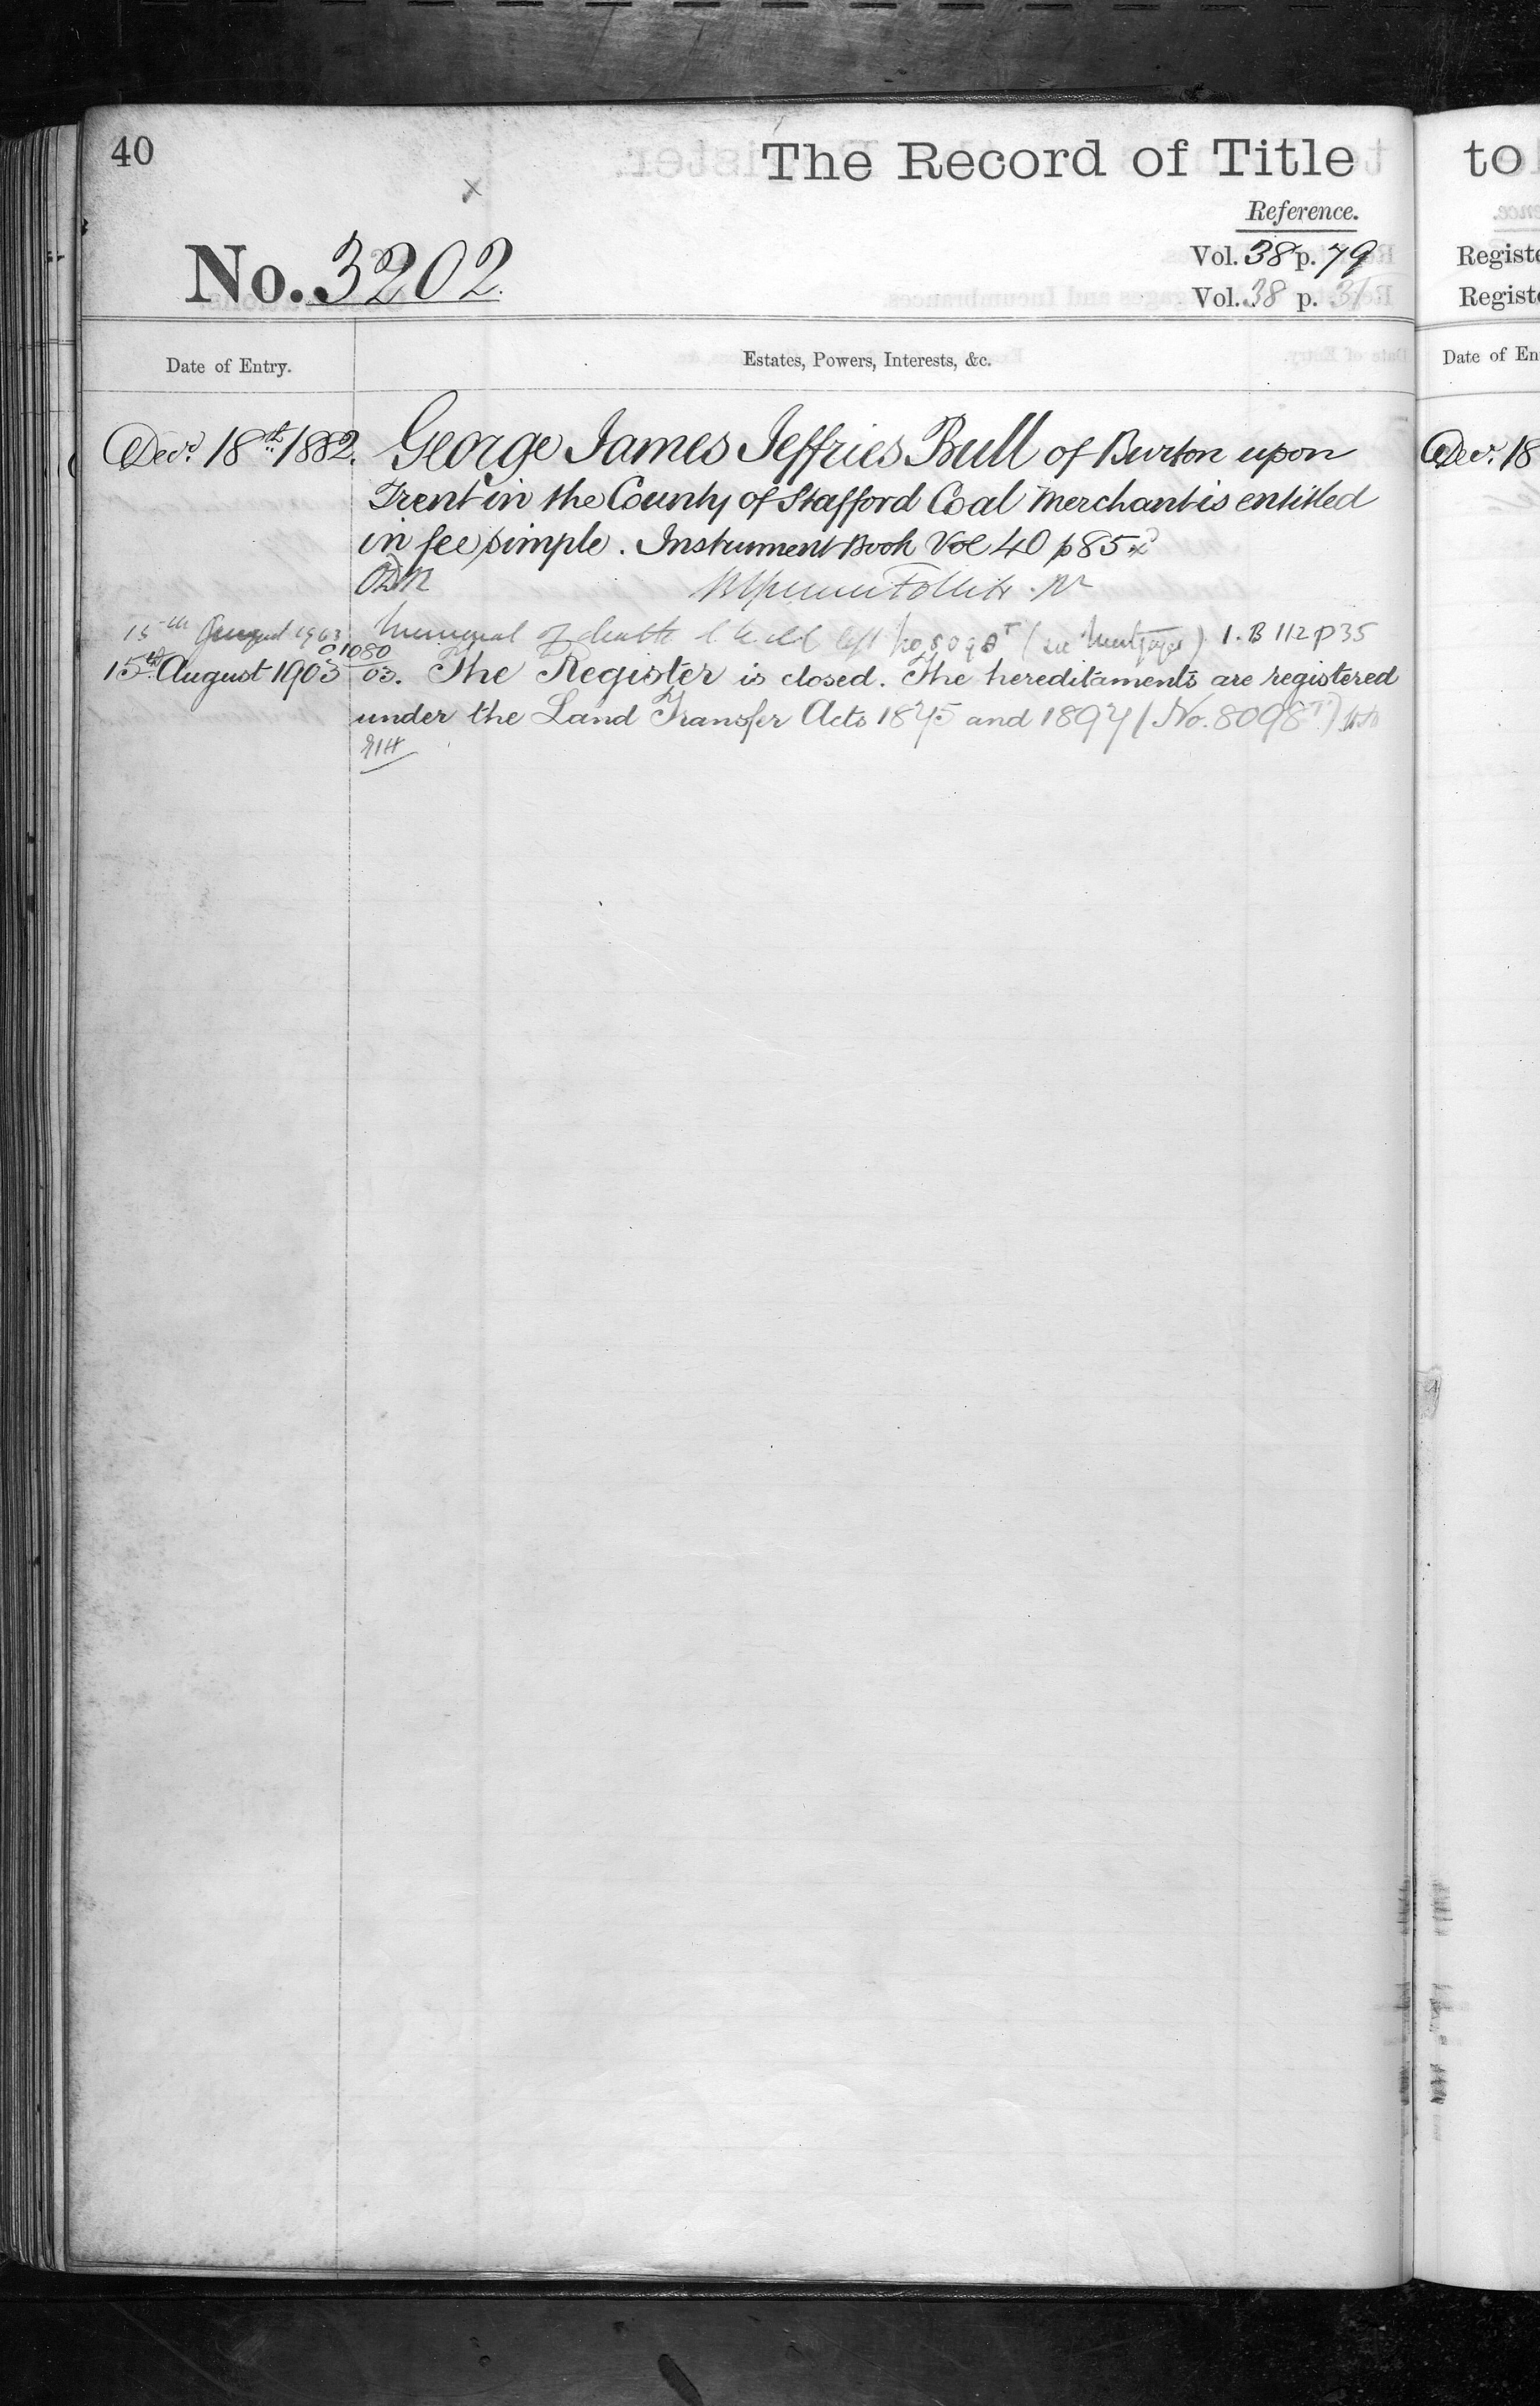 40
The Record of Title
Reference.
No. 3202.
Vol. 38 p. 79
Vol. 38 p. 31
Date of Entry.
Estates, Powers, Interests, &c.
Decr. 18th. 1882. George James Jeffries Bull of Burton upon
Trent in the County of Stafford Coal Merchant is entitled
in fee simple. Instrument Book Vol 40 p 85
15th August 1903 of death (see Mortgages) I. B 112 p 35
15th August 1903 C1080/03. The Register is closed. The hereditaments are registered
under the Land Transfer Acts 1875 and 1897 (No. 8098T)
to
Registe
Registe
Date of En
Decr. 18